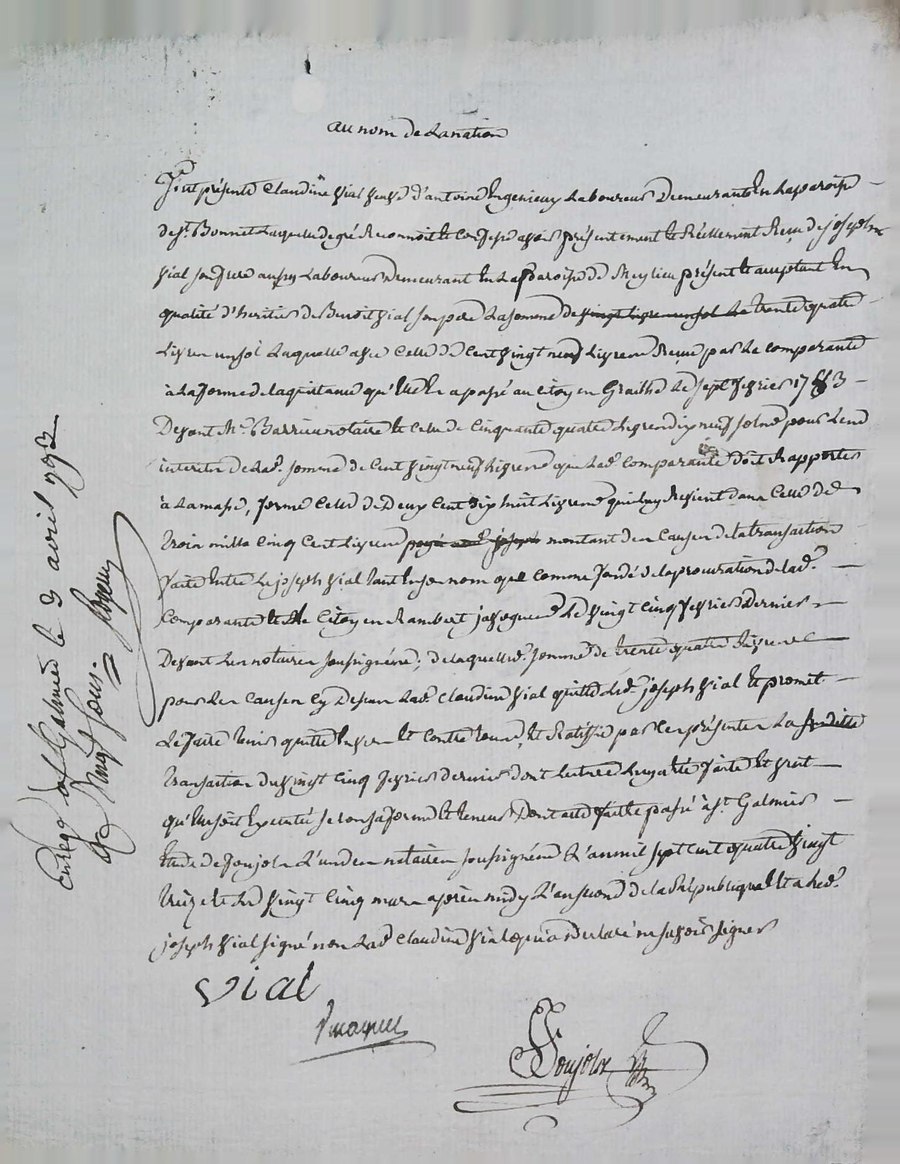 au nom de la nation
fut présente Claudine vial veuve d'antoine Ingenieux Laboureur Demeurante En la paroisse
de st. Bonnet Laquelle de gré Reconnoit et Confesse avoir présentement et Réellement Reçu de joseph
vial son frere aussy Laboureur Demeurant En La paroisse de Meylieu présent et acceptant En
qualité d'heritier de Benoit vial son pere La somme de vingt Livres un sol de trente quatre
Livres un sol Laquelle avec Celle de Cent vingt neuf Livres Reçue par La comparante
à La forme de la quittance qu'Elle En a passé au Citoyen le sept fevrier 1783
Devant Me. Barrieu notaire et Celle de Cinquante quatre Livres dix neuf sols pour Les
interets de Lad. somme de Cent vingt neuf Livres que Lad. comparante doit Rapporter
à La masse, forme Celle de Deux Cent dix huit Livres qui luy Revient dans Celle de
trois mille Cinq Cent Livres payé joseph montant des Causes de la transaction
faite Entre Le joseph vial tant En son nom que comme fondé de la procuration de lad.
Comparante et le Citoyen Rambert Le vingt Cinq fevrier Dernier
Devant Les notaires soussignés, de laquelle somme de trente quatre Livres
pour Les Causes Cy Dessus Lad. Claudine vial quitte Led. joseph vial et promet
Le faire tenir quitte Envers Et Contre tous, Et Ratiffie par Ces présentes La susditte
transaction du vingt Cinq fevrier dernier dont Lecture Luy a Eté faite Et veut
qu'Elle soit Executé selon sa forme Et teneur Dont acte fait et passé à st. Galmier
Etude de Poujols L'un des notaires soussignés L'an mil sept Cent quatre vingt
treize et Le vingt Cinq mars aprés midy L'an second de la République Et a Led.
joseph vial signé non Lad. Claudine vial qui a Declaré ne savoir signer
vial
Poujols
Enreg. à st. Galmier le 3 avril 1793
vingt sous.